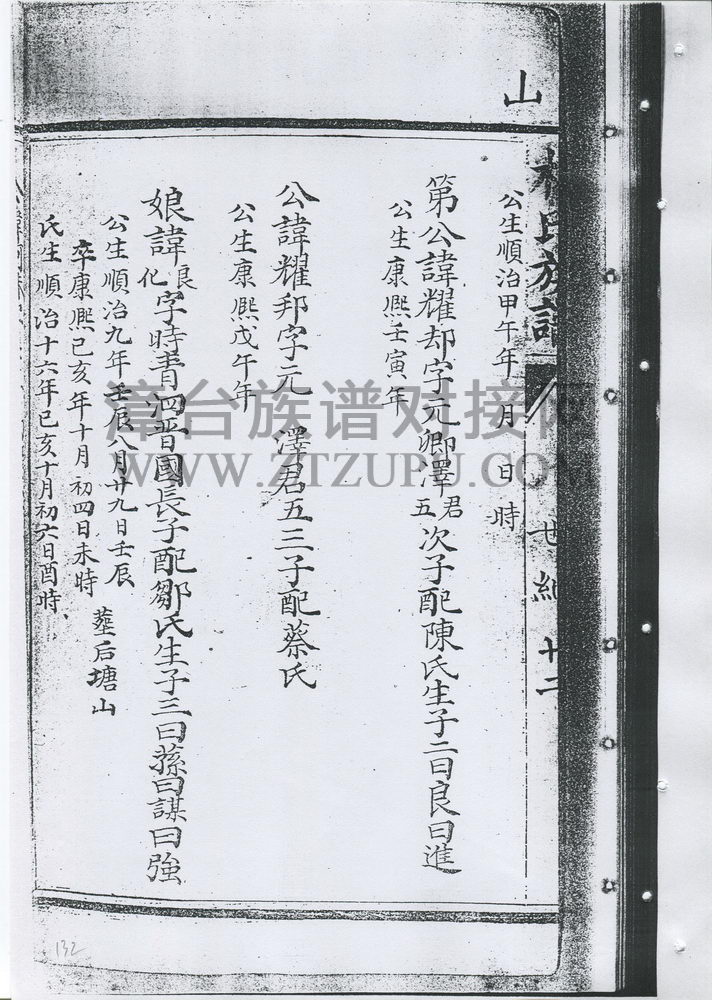 山
氏族譜
世紀 十二
公生順治甲午年 月 日 時
第公諱耀却字元卿澤君五次子配陳氏生子二曰良曰進
公生康熙壬寅年
公諱耀邦字元 澤君五三子配蔡氏
公生康熙戊午年
娘諱良化字時青泗晋國長子配鄒氏生子三曰蓀曰謀曰強
公生順治九年壬辰八月廿九日壬辰
卒康熙己亥年十月初四日未時 葬后塘山
氏生順治十六年己亥十月初六日酉時
漳台族谱对接网
WWW.ZTZUPU.COM
132